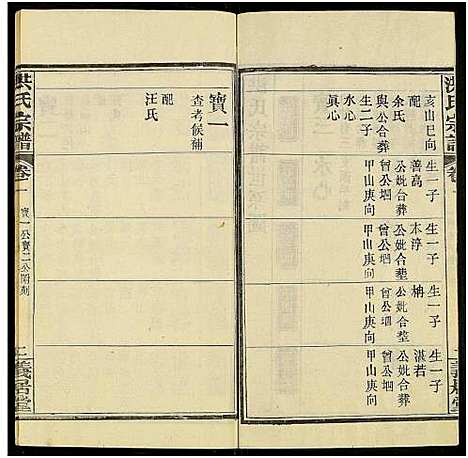 洪氏宗譜
卷一
亥山巳向
配
余氏
與公合葬
生二子
水心
真心
生一子
善高
公妣合葬
曾公堌
甲山庚向
生一子
木淳
公妣合塟
曾公堌
甲山庚向
生一子
公妣合塟
曾公堌
甲山庚向
生一子
湛若
公妣合葬
曾公堌
甲山庚向
義居堂
寶一
查考候補
配
汪氏
洪氏宗譜
卷一
寶一公寶二公附刻
義居堂